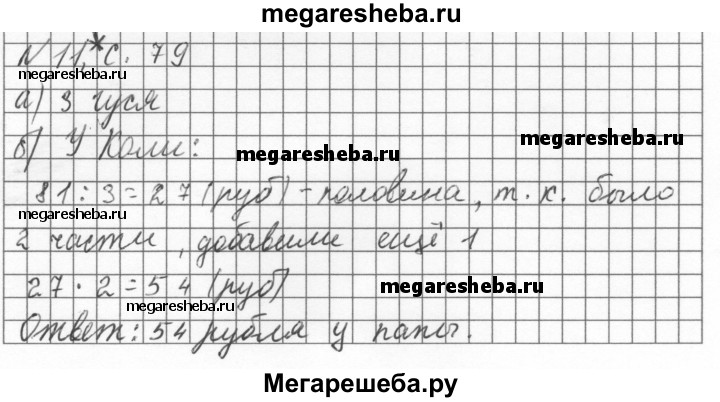 megaresheba.ru
N 11* с. 79
megaresheba.ru
а) 3 гуся
б) У Коли:
megaresheba.ru
megaresheba.ru
81 : 3 = 27 (руб) - половина, т. к. было
megaresheba.ru
2 части, добавили ещё 1
27 · 2 = 54 (руб)
megaresheba.ru
megaresheba.ru
Ответ: 54 рубля у папы.
Мегарешеба.ру